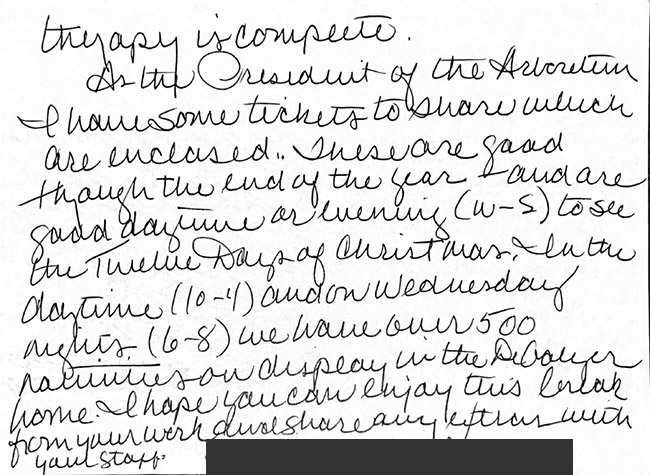 therapy is complete.
As the President of the Arboretum
I have some tickets to share which
are enclosed. These are good
though the end of the year - and are
good daytime or evening (W-S) to see
the Twelve Days of Christmas. In the
daytime (10-4) and on Wednesday
nights (6-8) we have over 500
nativities on display in the DeGolyer
home. I hope you can enjoy this break
from your work and share any extras with
your staff.